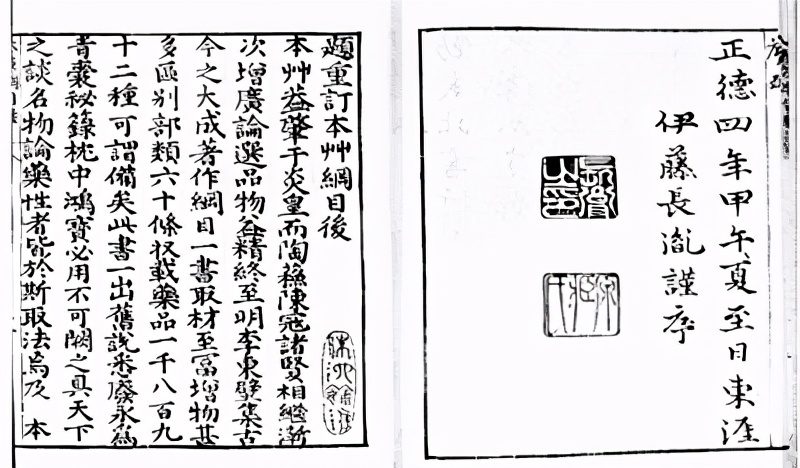 正德四年甲午夏至日東涯
伊藤長胤謹序
題重訂本艸綱目後
本艸葢肇于炎皇而陶蘇陳寇諸賢相繼漸
次增廣論選品物益精終至明李東璧集古
今之大成著作綱目一書取材至富增物甚
多區別部類六十條收載藥品一千八百九
十二種可謂備矣此書一出舊說悉廢永為
青囊祕錄枕中鴻寶必用不可闕之具天下
之談名物論藥性者皆於斯取法焉及 本